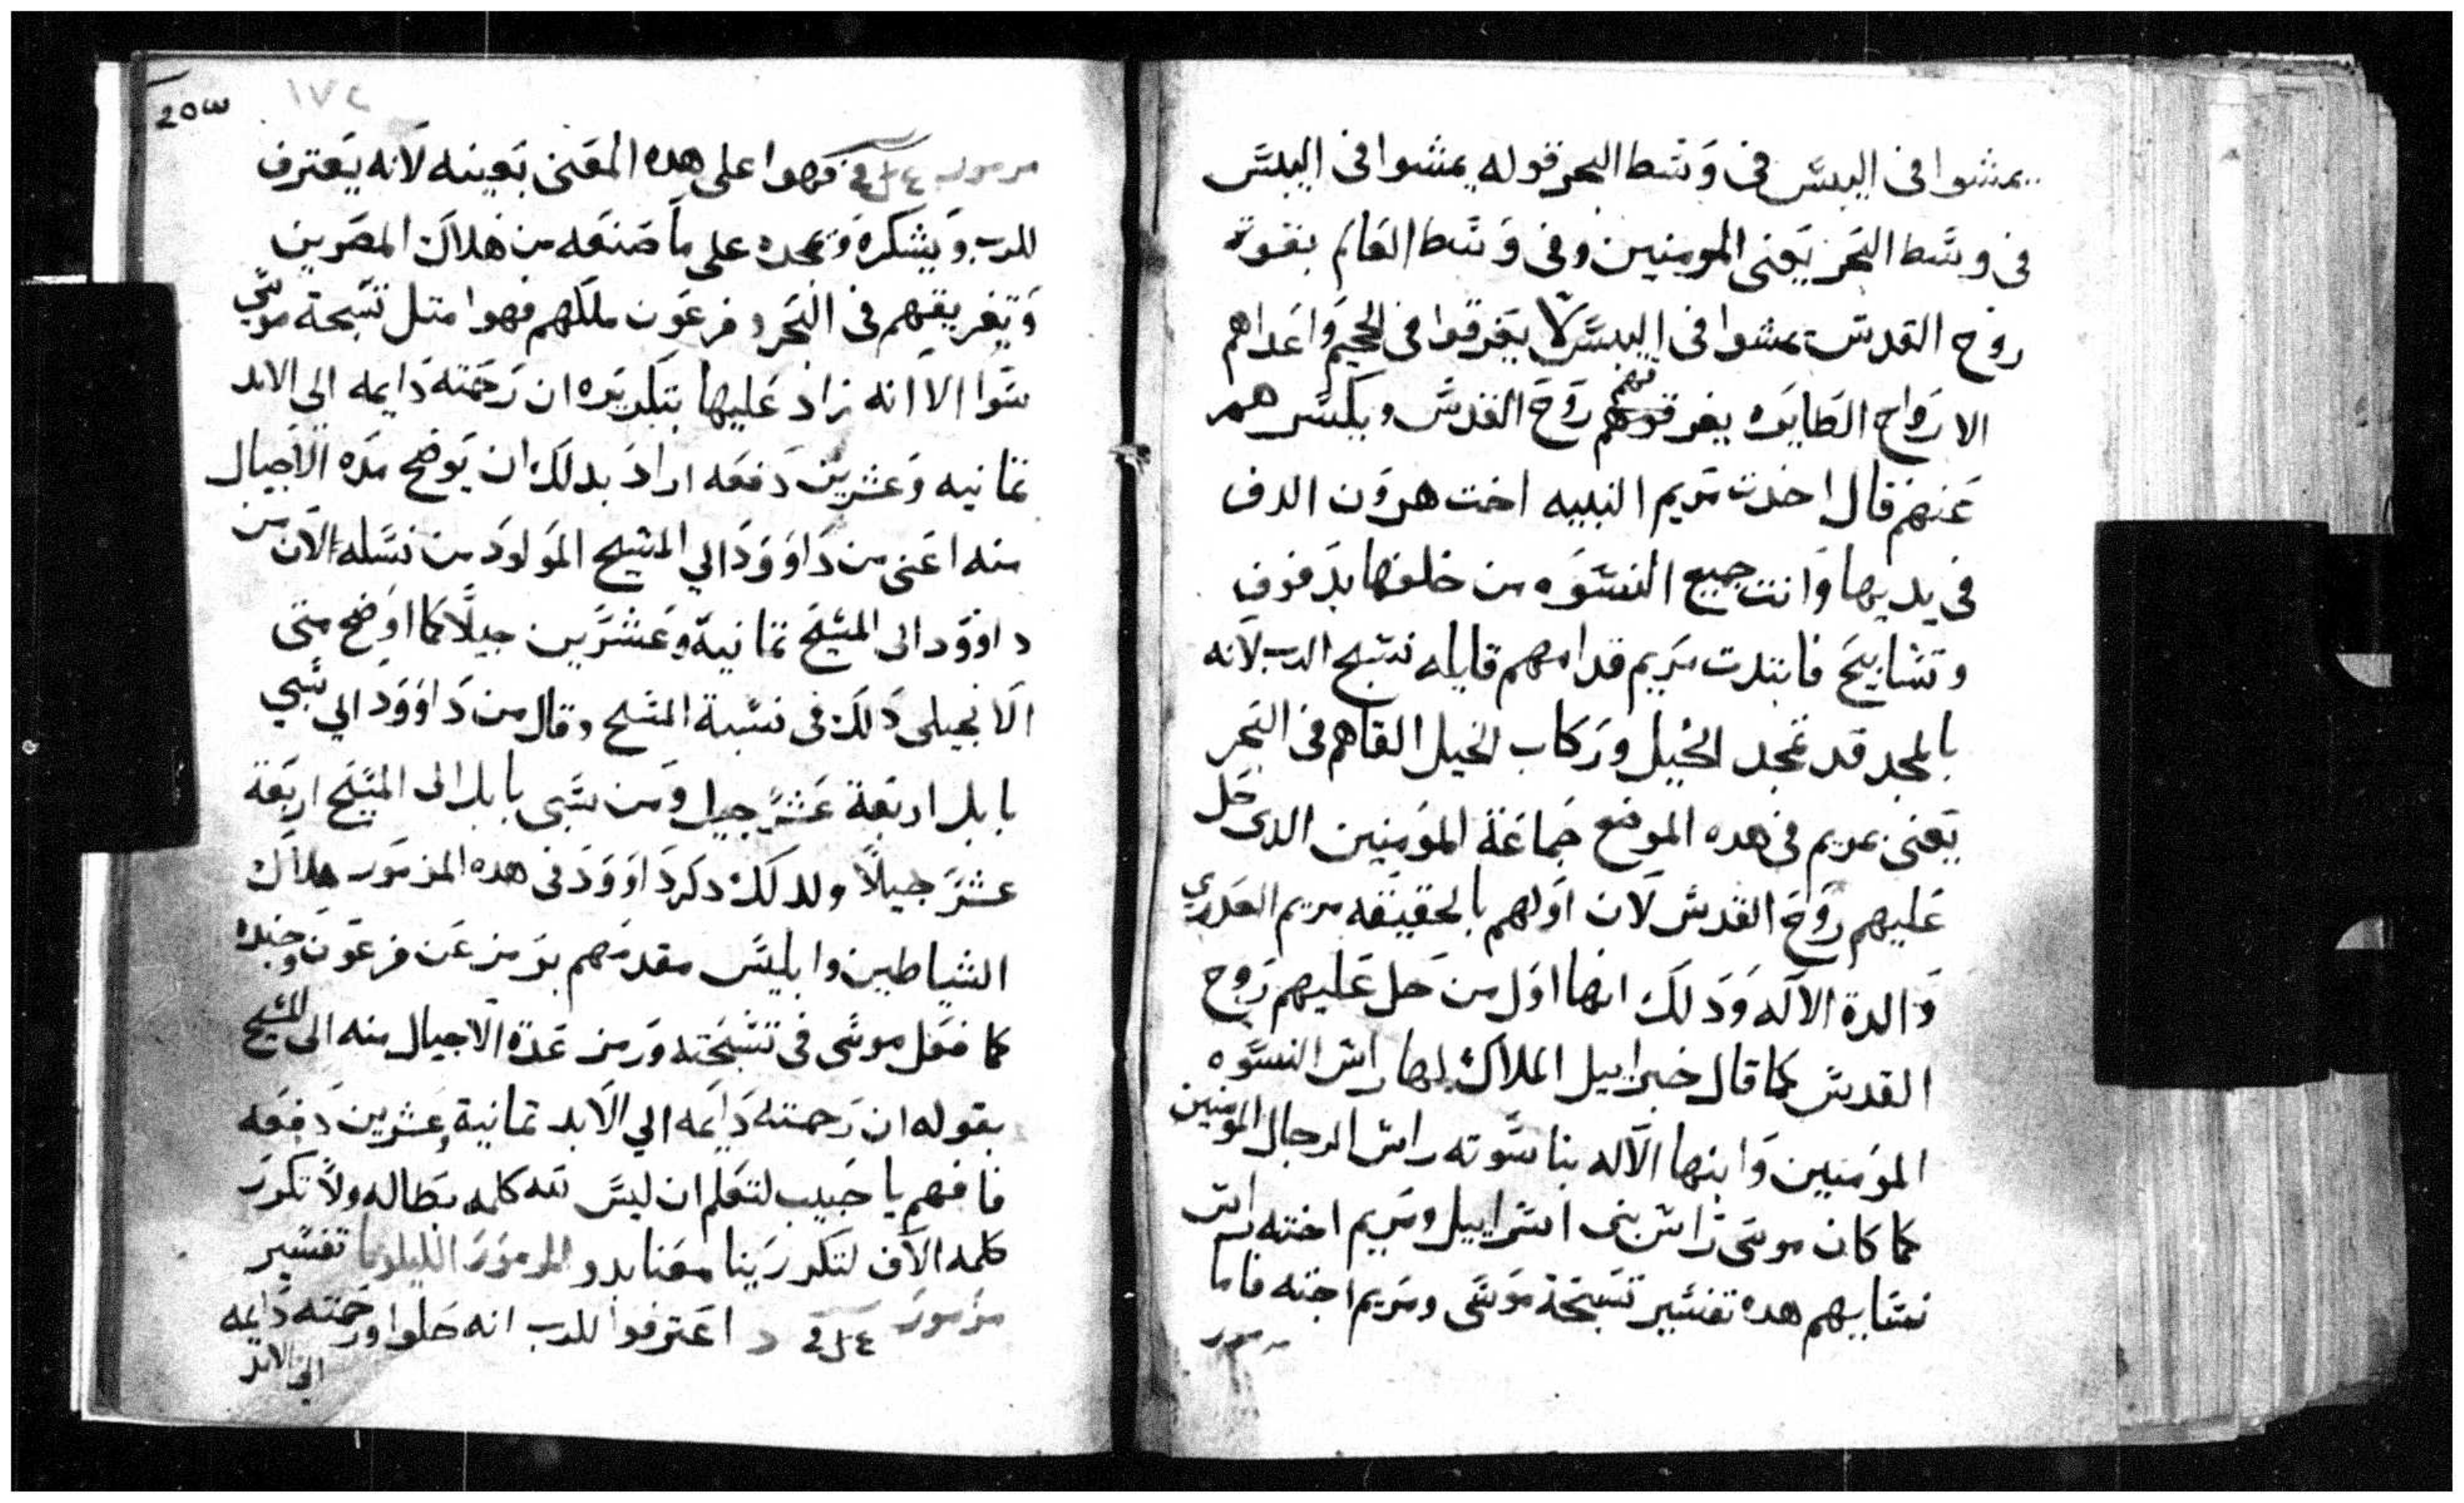 يمشوا فى اليبس فى وسط البحر قوله يمشوا فى اليبس
فى وسط البحر يعنى المومنين وفى وسط العالم بقوة
روح القدس يمشوا فى اليبس لا يغرقوا فى الجحيم واعداهم
الارواح الطايره يغرقهم روح القدس ويكسرهم
عنهم قال اخدت مريم النبيه اخت هرون الدف
فى يديها واتت جميع النسوه من خلفها بدفوف
وتسابيح فابتدت مريم قدامهم قايله نسبح الرب لانه
بالمجد قد تمجد الخيل وركاب الخيل القاهم فى البحر
يعنى بمريم فى هده الموضع جماعة المومنين الدى حل
عليهم روح القدس لان اولهم بالحقيقه مريم العدرى
والدة الاله ودلك انها اول من حل عليهم روح
القدس كما قال جبراييل الملاك لها راس النسوه
المومنين وابنها الاله بناسوته راس الرجال المومنين
كما كان موسى راس بنى اسراييل ومريم اخته راس
نسايهم هده تفسير تسبحة موسى ومريم اخته فاما
مزمور
١٧٤
مزمور فهوا على هده المعنى بعينه لانه يعترف
للرب ويشكره ويمجده على ما صنعه من هلاك المصريين
وتغريقهم فى البحر وفرعون ملكهم فهوا متل تسبحة موسى
سوا الا انه زاد عليها بتكريره ان رحمته دايمه الي الابد
تمانيه وعشرين دفعه اراد بدلك ان يوضح مده الاجيال
منه اعنى من داوود الي المسيح المولود من نسله الان من
داوود الى المسيح تمانية وعشرين جيلا كما اوضح متى
الانجيلى دلك فى نسبة المسيح وقال من داوود الي سبي
بابل اربعة عشر جيل ومن سبى بابل الى المسيح اربعة
عشر جيلا ولدلك دكر داوود فى هده المزمور هلاك
الشياطين وابليس مقدمهم برمز عن فرعون وجنده
كما فعل موسى فى تسبحته ورمز عدة الاجيال منه الى المسيح
بقوله ان رحمته دايمه الي الابد تمانية وعشرين دفعه
فافهم يا حبيب لتعلم ان ليس تمه كلمه بطاله ولا تكرر
كلمه الان لتكرر معنا المزمور تفسير
مزمور اعترفوا للرب انه حلوا ورحمته دايمه
الى الابد